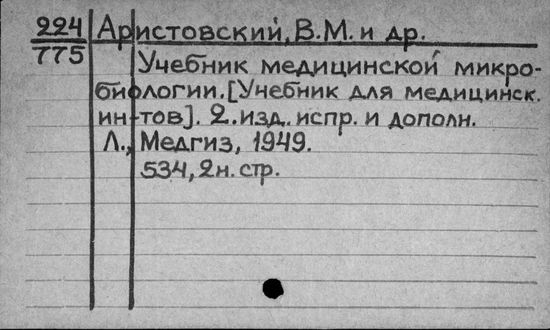 224 Аристовский, В.М. и др.
775
Учебник медицинской микро-
биологии. [Учебник для медицинск.
ин-тов]. 2. изд. испр. и дополн.
Л., Медгиз, 1949.
534, 2 н. стр.